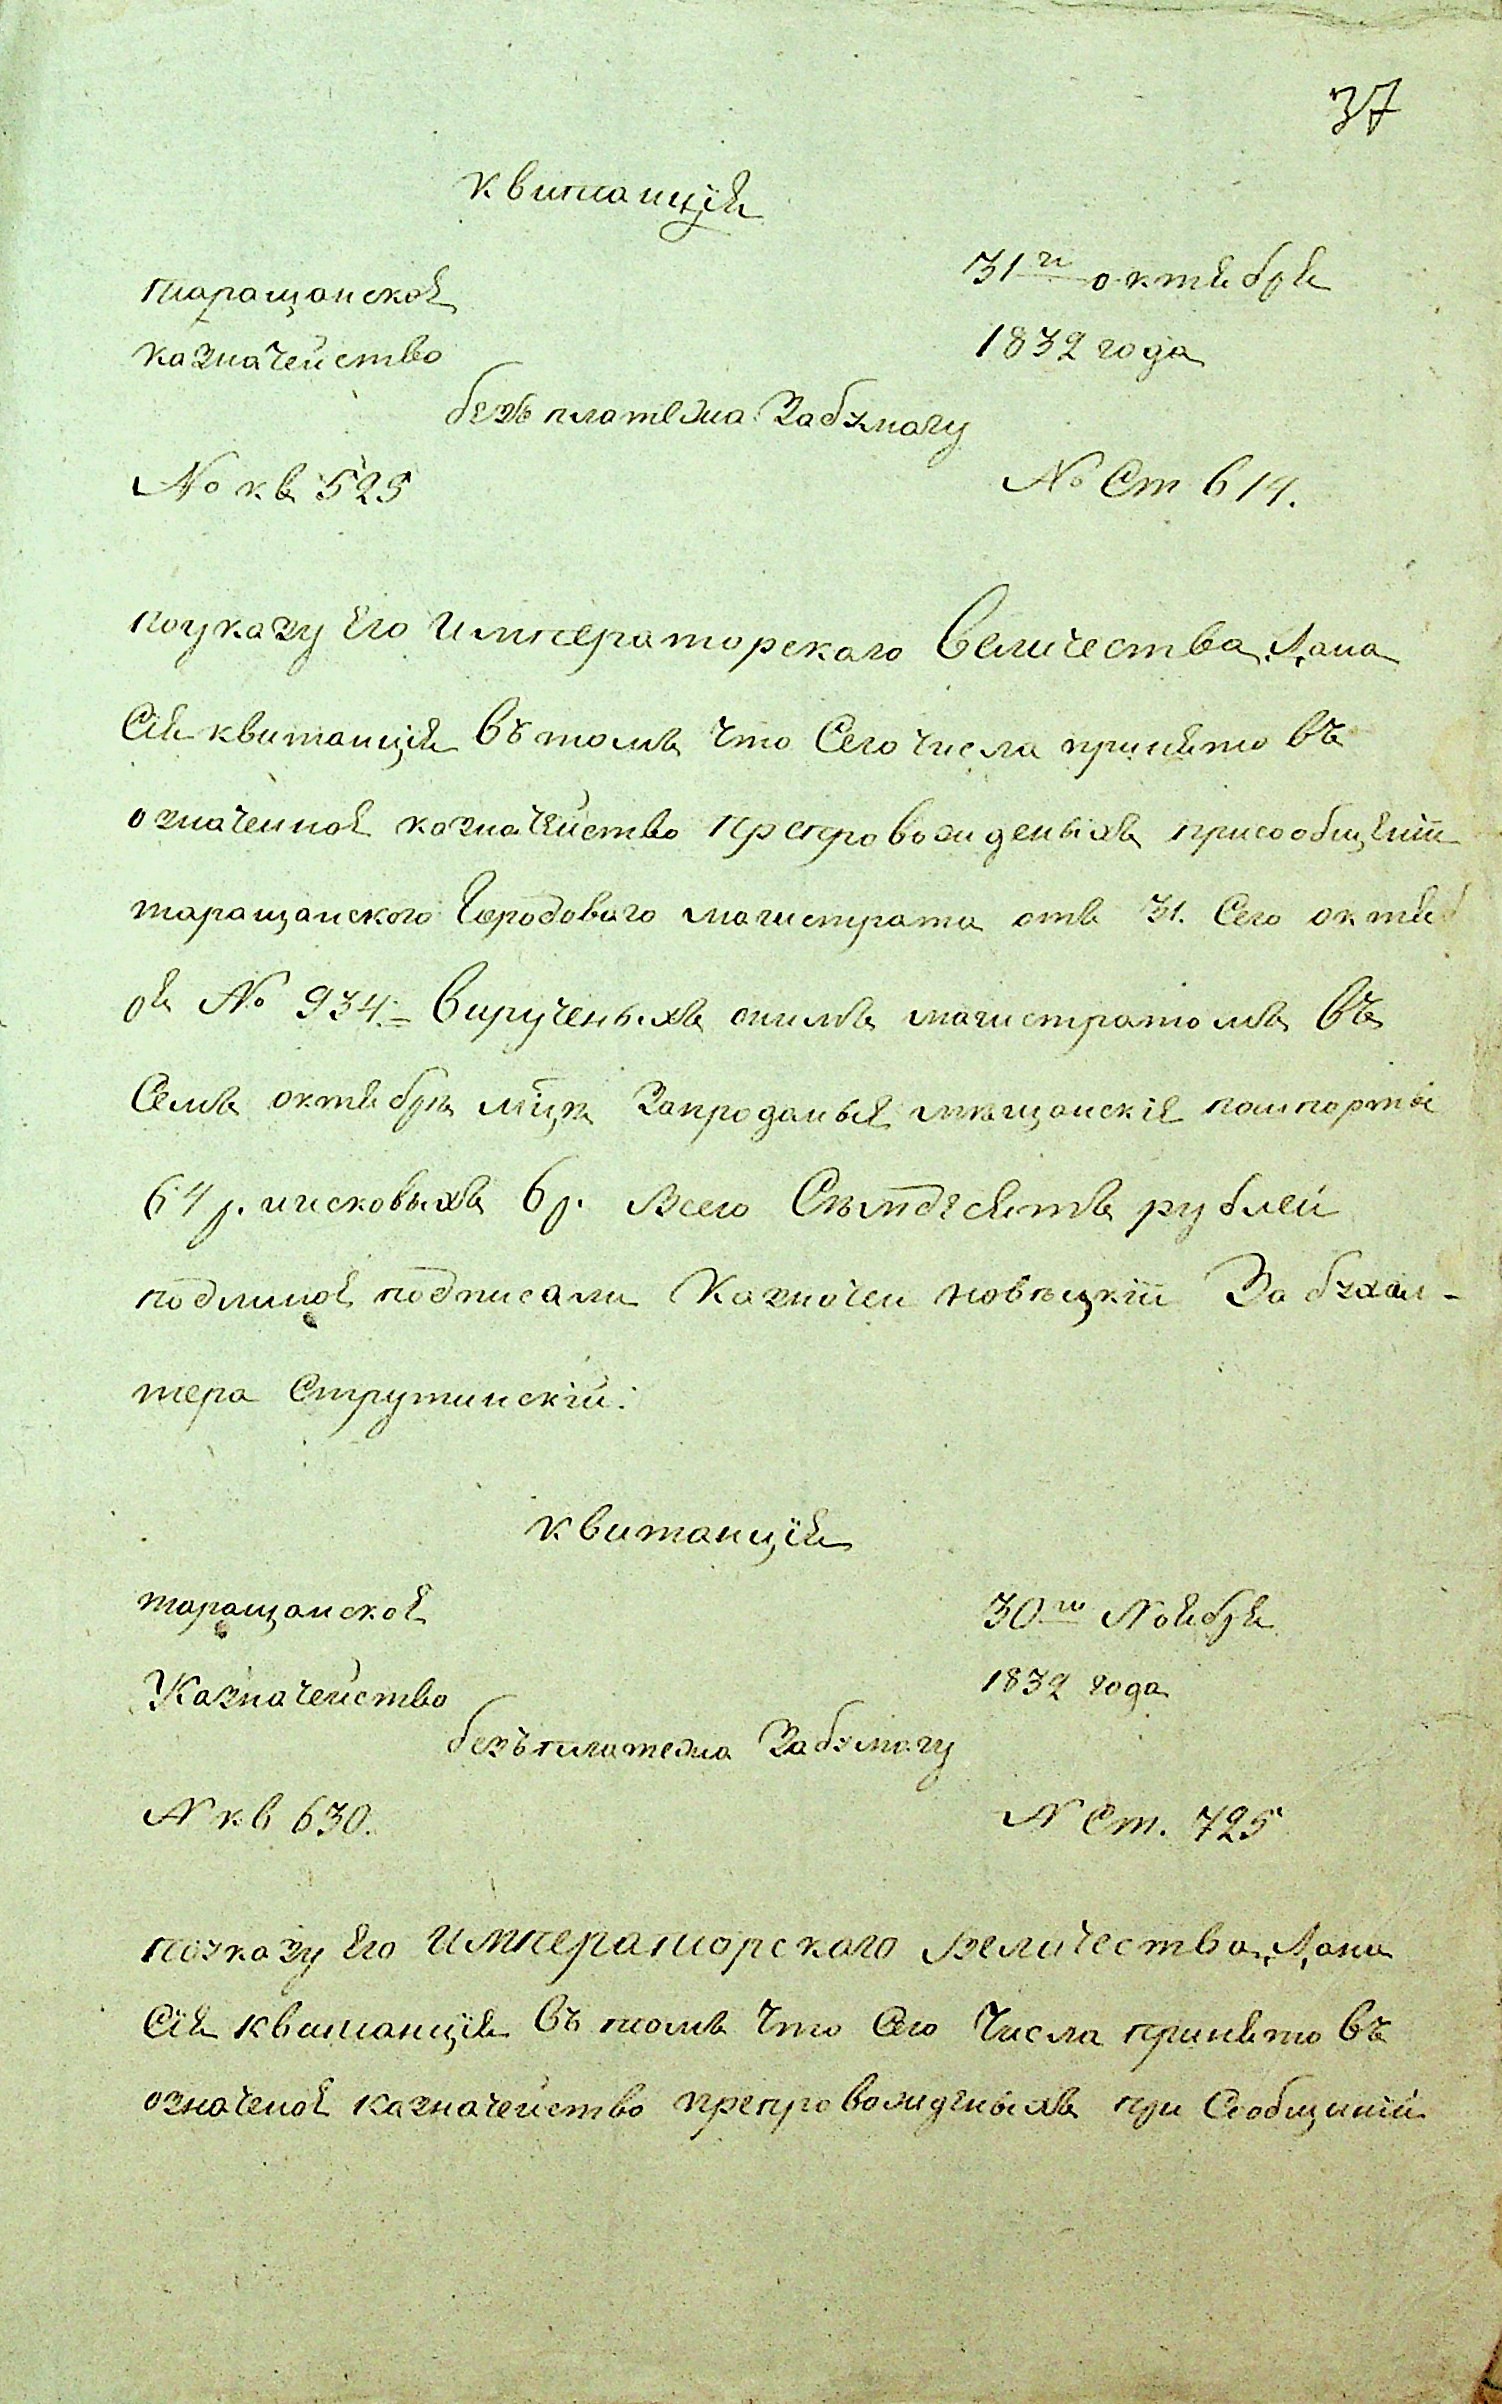 37
квитанція
таращанскоѣ 31го октября
казначейство 1832 года
безъ платежа за бумагу
№ кв 525 № Ст 614.
поуказу Его Императорскаго Величества, Дана
Сія квитанція въ томъ что Сего числа принято въ
означенноѣ казначейство препровожденыхъ присообщеніи
таращанского Городоваго магистрата отъ 31. Сего октяб
ря № 934. = вирученыхъ онимъ магистратомъ въ
Семъ октябрѣ мцѣ Запроданыѣ мѣщанскіѣ пашпорты
64 р. иисковыхъ 6 р. Всего Сѣмдесятъ рублей
подлиноѣ подписали Казначей новѣцкій За бухал-
тера Струтинскій:
квитанція
таращанскоѣ 30го Ноября
Казначейство 1832 года
безъ платежа Забумагу
N кв 630. N Ст. 725
поуказу Его Императорскаго Величества, Дана
Сія квитанція въ томъ что Сего Числа принято въ
означеноѣ казначейство препровожденыхъ при Сообщиній